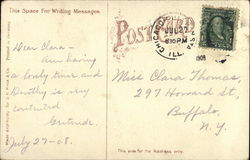 This Space For Writing Messages.
POSTCARD
CHICAGO
JUL 27
8 30 PM
ILL.
1908
Dear Clara -
Am having
a lovely time and
Dorothy is very
contented
Gertrude.
July 27-08.
Miss Clara Thomas,
297 Howard St,
Buffalo,
N.Y.
This side for the Address only.